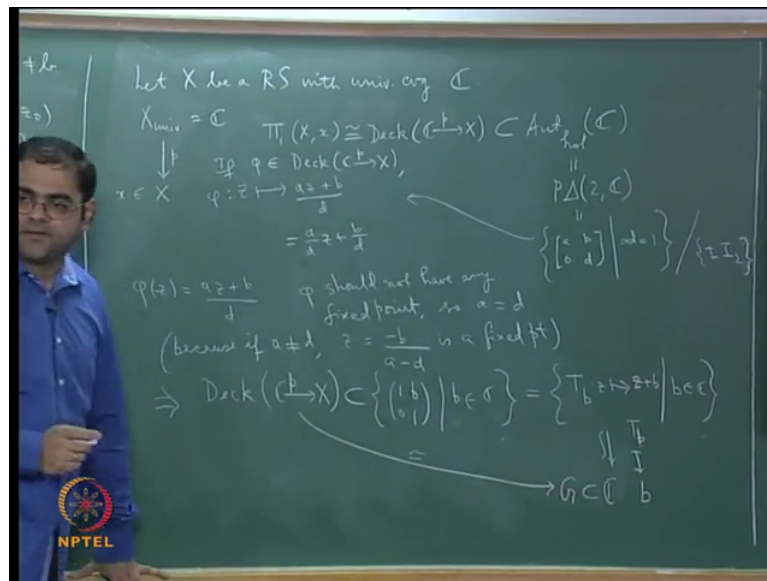 ≠ b
z₀)
Let X be a RS with univ. cvg ℂ
X_univ. = ℂ
π₁(X, x) ≅ Deck(ℂ →^p X) ⊂ Aut_hol(ℂ).
↓p
If φ ∈ Deck(ℂ →^p X),
=
x ∈ X φ : z ↦ (az + b)/d
PΔ(2, ℂ)
=
= (a/d) z + b/d
{[a b; 0 d] | ad = 1} / {± I₂}
φ(z) = (az + b)/d φ should not have any
fixed point, so a = d
(because if a ≠ d, z = -b/(a-d) is a fixed pt)
⇒ Deck(ℂ →^p X) ⊂ {(1 b; 0 1) | b ∈ ℂ} = {T_b : z ↦ z+b | b ∈ ℂ}
≅ T_b
↓
G ⊂ ℂ b
NPTEL